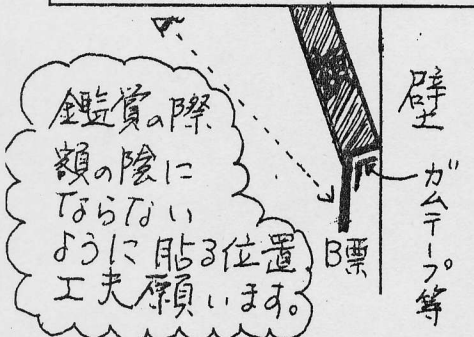 鑑賞の際
額の陰に
ならない
ように貼る位置
工夫願います。
B票
壁
ガムテープ等